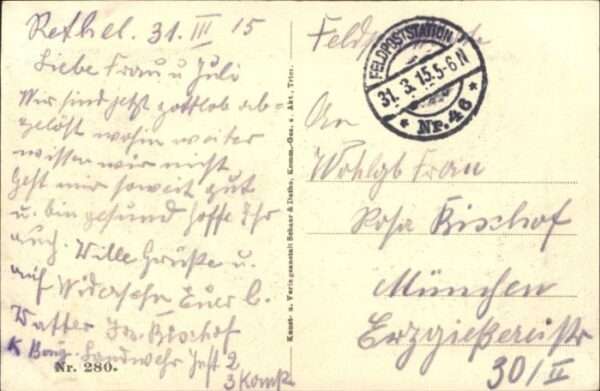 Rethel. 31. III 15
Liebe Frau u Juli
Wir sind jetzt gottlob ab-
gelöst wohin weiter
wissen wir nicht
geht mir soweit gut
u. bin gesund hoffe Ihr
auch. Viele Grüße u.
auf Widersehn Euer l.
Vatter Jos. Bischof
K Bay. Landwehr Inft 2
3 Komp
Nr. 280.
Kunst- u. Verlagsanstalt Schaar & Dathe, Komm.-Ges. a. Akt., Trier.
FELDPOSTSTATION
31. 3. 15. 5-6 N
* Nr. 46 *
An
Wohlgb Frau
Rosa Bischof
München
Erzgießereistr
30/II